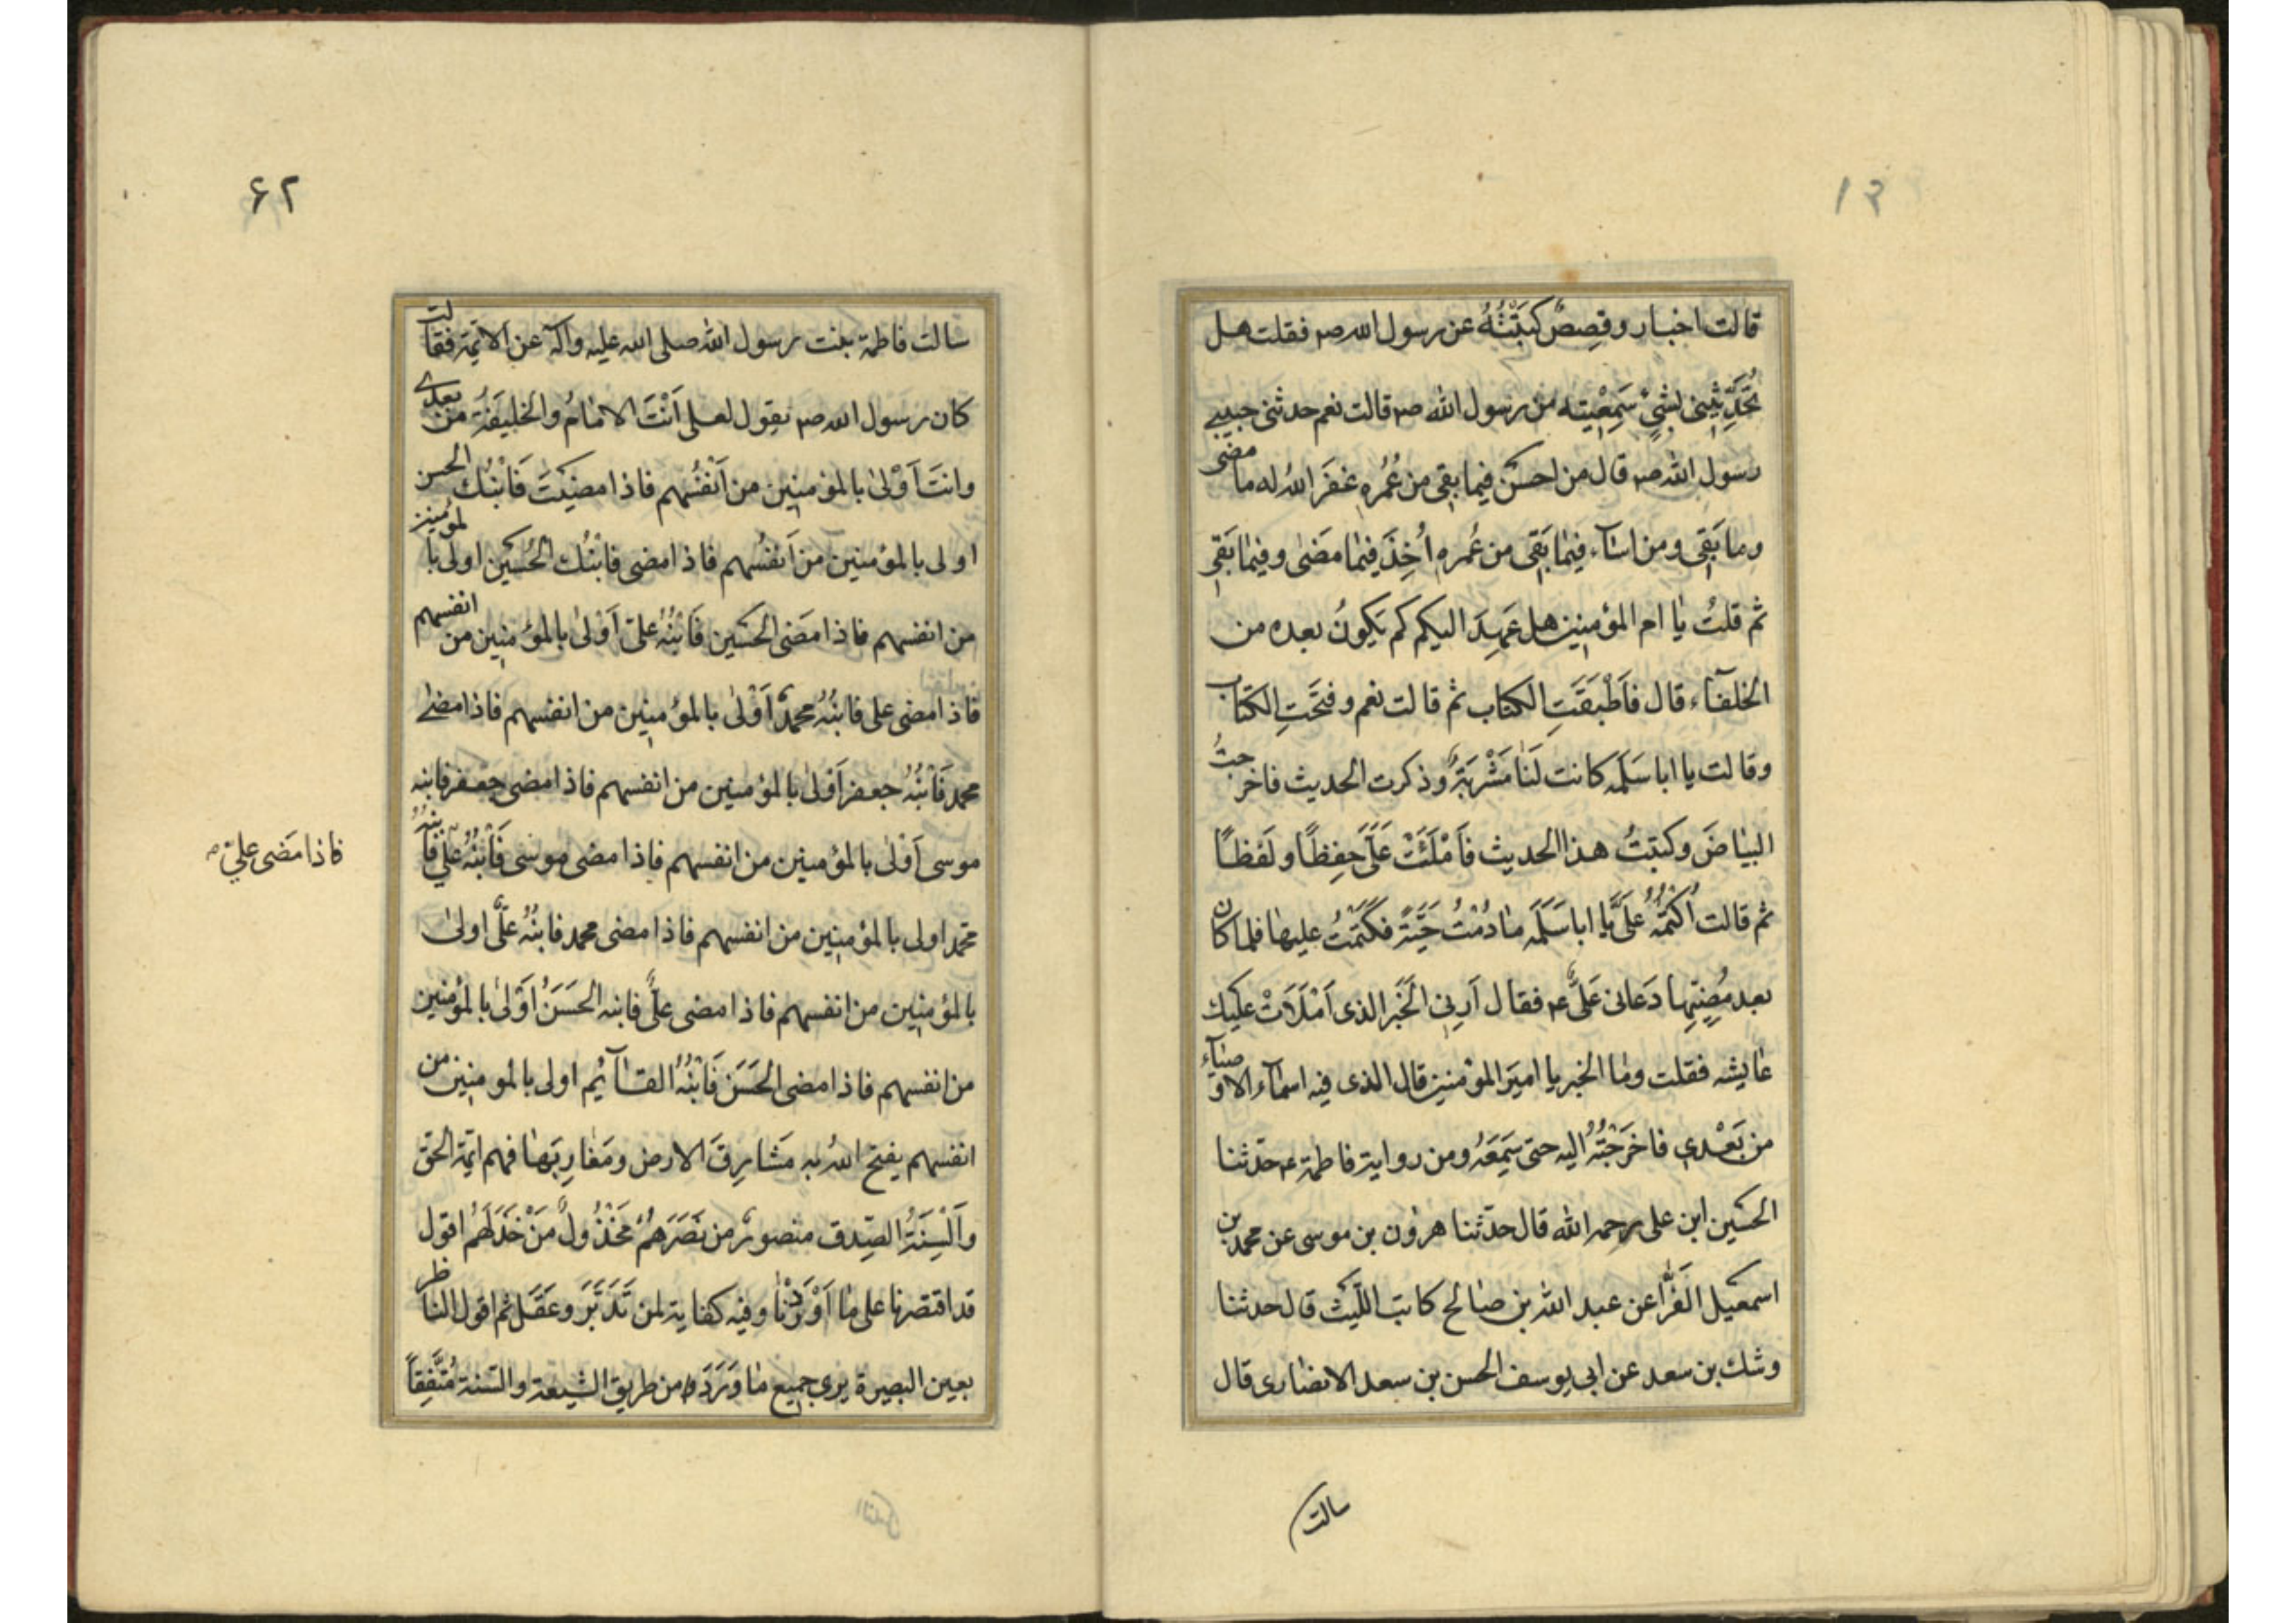 ١٣
قالت اخبار وقصصٌ كَتَبْتُهُ عن رسول الله صم فقلت هل
تُحَدِّثِينِى بشىٍ سَمِعْتِيهِ من رسول الله صم قالت نعم حدثنى حبيبى
رسول الله صم قال من احسَن فيما بقى من عُمُرِهِ غفَرَ اللهُ له ما مضى
وما بَقِى ومن اسآء فيما بَقِى من عُمرِهِ اُخِذَ فيما مَضى وفيما بَقِى
ثم قلتُ يا ام المؤمنين هل عَهِدَ اليكم كم يَكونُ بعده من
الخلفآء قال فاَطْبَقَتِ الكتاب ثم قالت نعم وفتَحَتِ الكتاب
وقالت يا ابا سَلَمَه كانت لَنا مَشْرَبَةٌ وذكرت الحديث فاخرجتُ
البياضَ وكتبتُ هذا الحديث فَاَمْلَئَتْ عَلَىَّ حِفِظًا ولَفظًا
ثم قالت اُكْتُمْهُ عَلَىَّ يا ابا سَلَمَه ما دُمْتُ حَيَّةً فكَتَمْتُ عليها فلما كان
بعد مُضِيِّها دَعانى عَلىٌّ ع فقال اَرِنِى الخَبَر الذى اَمْلَاَتْ عليك
عايشه فقلت وما الخبر يا اميرَ المؤمنين قال الذى فيه اسمآء الاوصيآء
من بَعْدِى فاخرَجْتُهُ اليه حتى سَمِعَهُ ومن رواية فاطمة ع حدثنا
الحسَين ابن على رحمه الله قال حدّثنا هرون بن موسى عن محمد بن
اسمعيل الفَرَّا عن عبد الله بن صالح كاتب اللَّيث قال حدثنا
وشك بن سعد عن ابى يوسف الحسن بن سعد الانصارى قال
سالت
۶۲
سالت فاطمة بنت رسول الله صلى الله عليه وآله عن الائمّة فقالت
كان رسول الله صم يقول لعلى اَنْتَ الامامُ والخليفَةُ من بعدى
وانتَ اَوْلىٰ بالمؤمنين من اَنْفُسِهم فاذا مضيتَ فَابْنُك الحسن
اولى بالمؤمنين من اَنفُسِهم فاذا مضى فابْنُك الحُسَين اولى بالمؤمنين
من انفسهم فاذا مَضى الحسَين فَابْنُهُ علىّ اَوْلىٰ بالمؤمنين من انفسهم
فاذا مضى على فابنُهُ محمدٌ اَوْلىٰ بالمؤمنين من انفسهم فاذا مضىٰ
محمد فَابْنُهُ جعفر اَوْلىٰ بالمؤمنين من انفسهم فاذا مضى جعفر فابنه
موسى اَوْلىٰ بالمؤمنين من انفسهم فاذا مضى موسى فَابْنُهُ علىّ فابنُهُ
فاذا مَضى علىّ
محمّد اولى بالمؤمنين من انفسهم فاذا مضى محمد فابنُهُ علىٌّ اولىٰ
بالمؤمنين من انفسهم فاذا مضى علىٌّ فابنه الحَسَنُ اَوْلىٰ بالمؤمنين
من انفسهم فاذا مضى الحَسَن فَابْنُهُ القآئِم اولى بالمؤمنين من
انفسهم يفتح اللهُ به مَشارِقَ الارض ومَغارِبَها فهم ائمّة الحق
واَلْسِنَةُ الصِّدق منصورٌ من نَصَرَهُمْ مَخْذُولٌ مَنْ خَذَلَهُم اقول
قد اقتصرنا على ما اَوْرَدْنا وفيه كفاية لمن تَدَبَّرَ وعَقَل ثم اقول الناظر
بعين البصيرة يرى جميع ما وَرَدَ من طريق الشيعة والسّنة مُتَّفِقاً